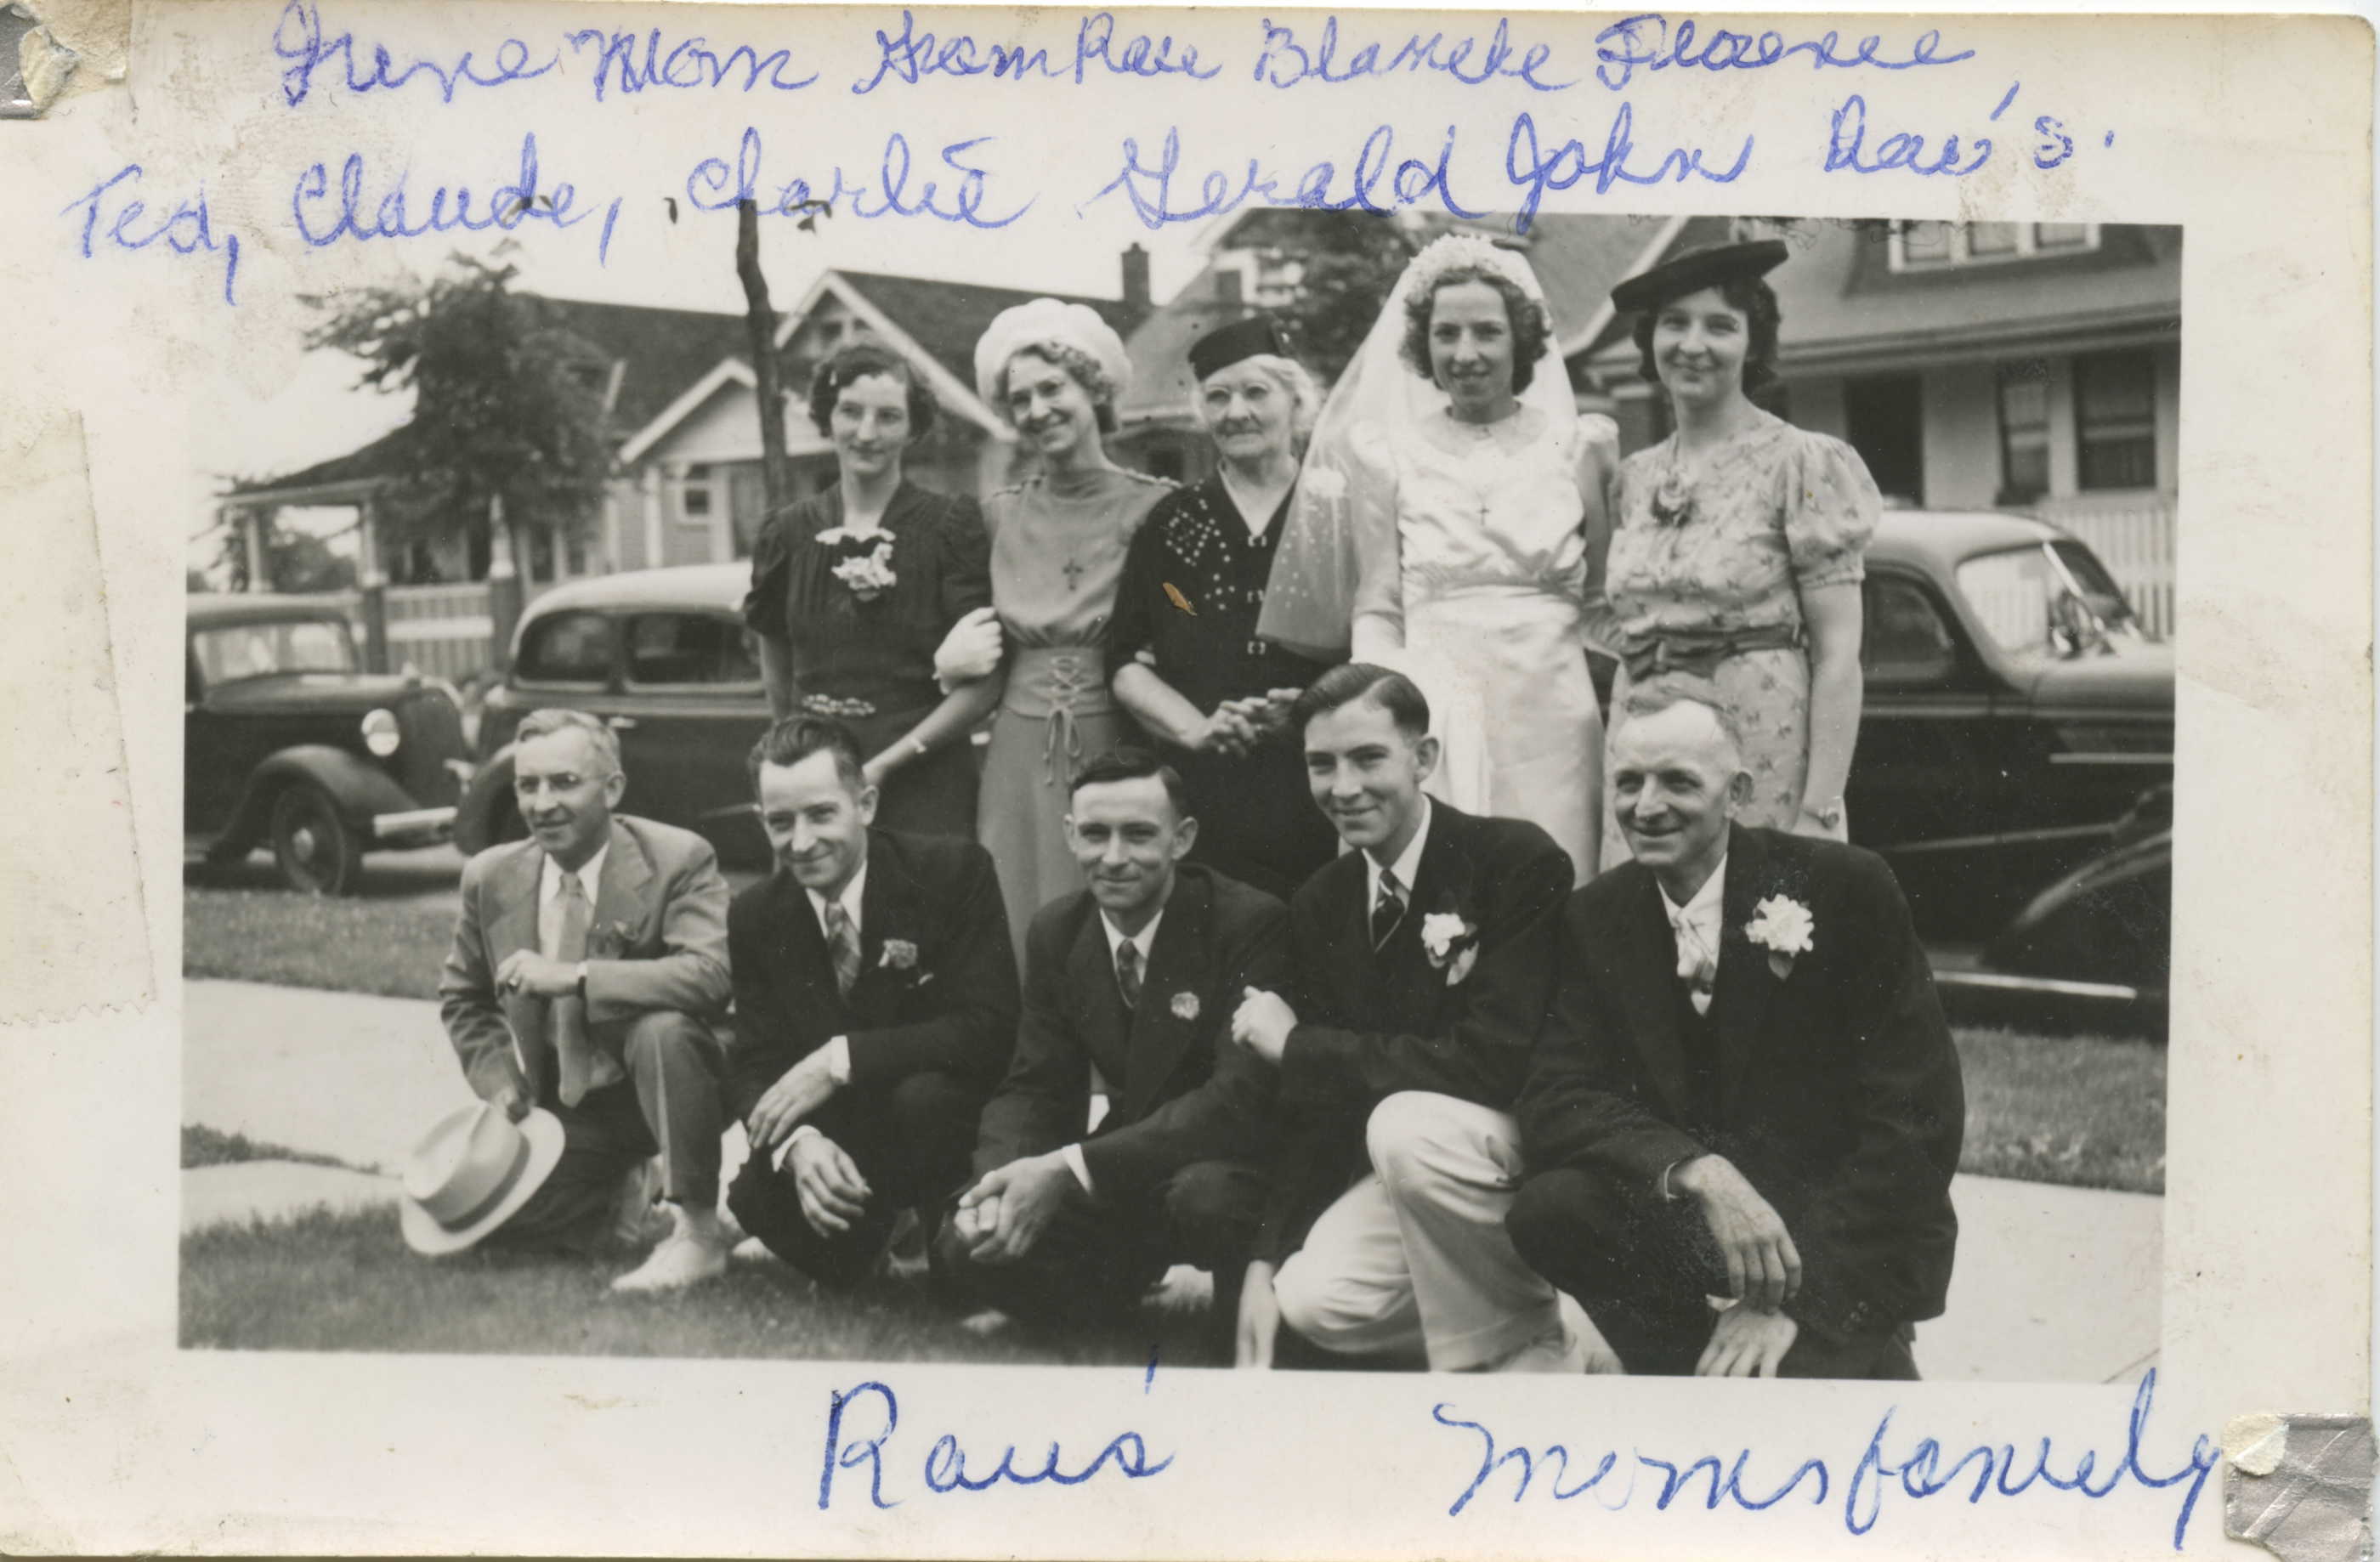 Irene Mom Gram Rau Blanche Florence,
Ted, Claude, Charlie Gerald John Rau's.
Rau's Moms family